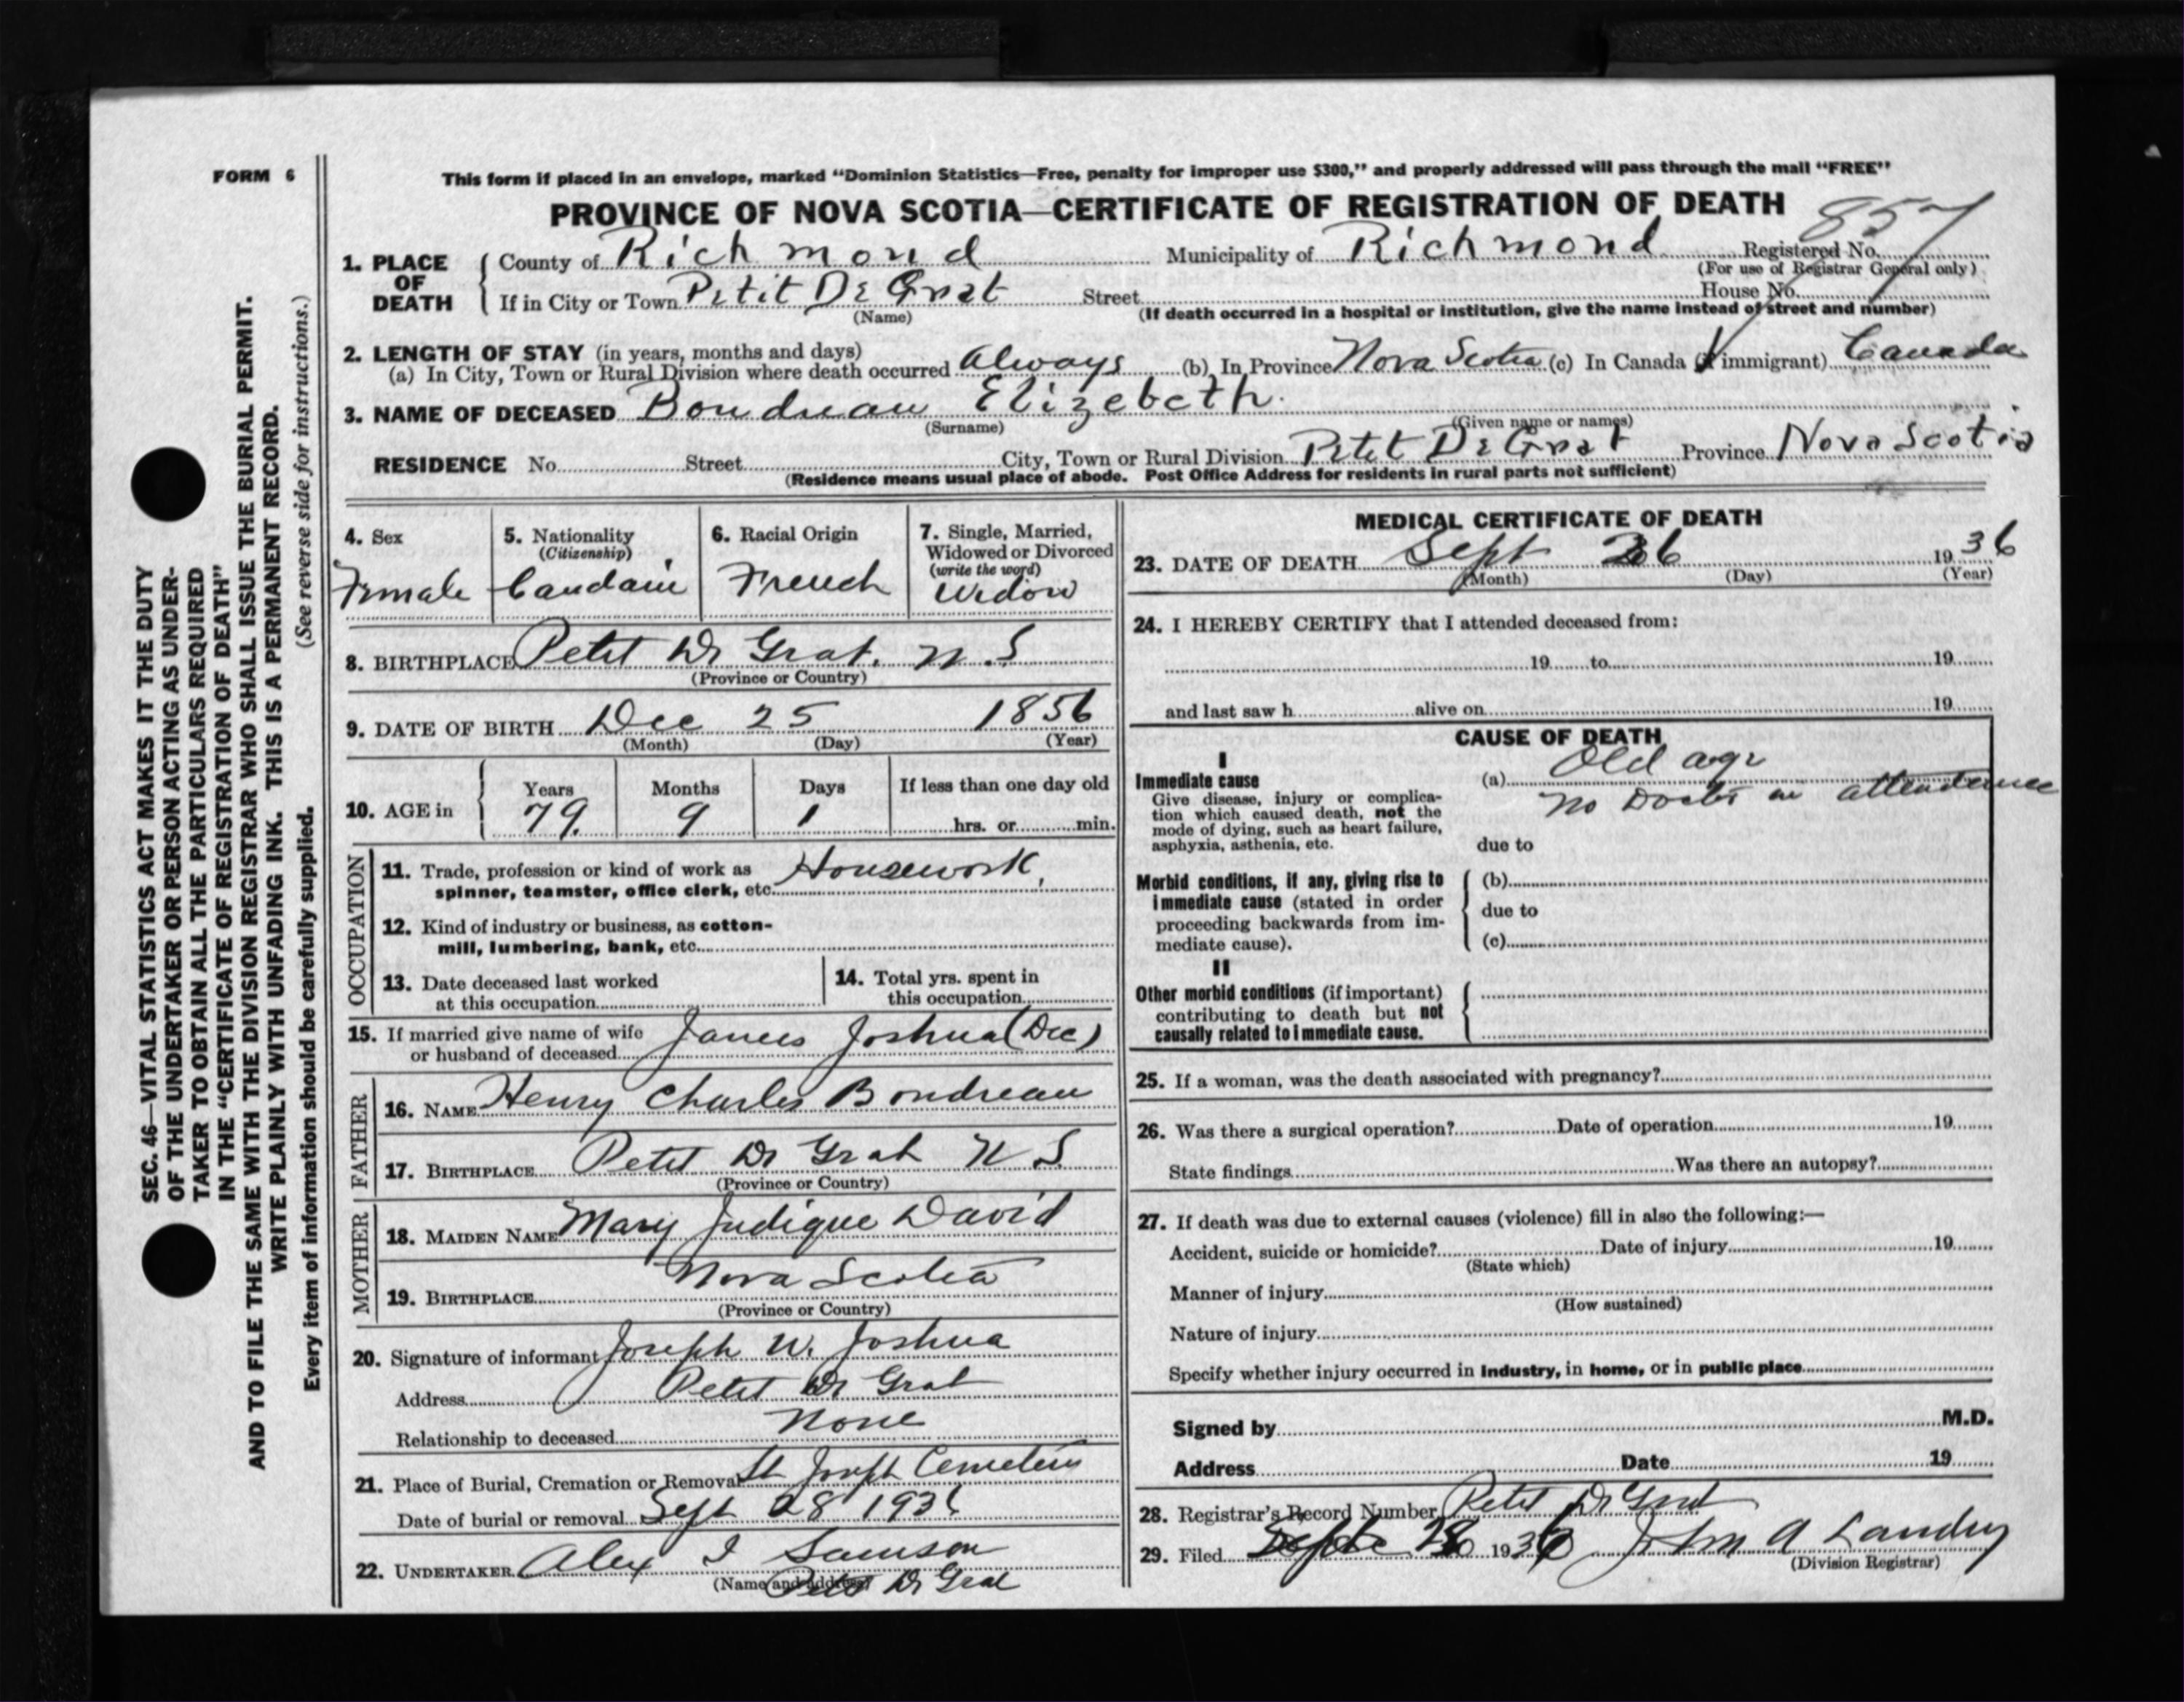 FORM 6
This form if placed in an envelope, marked “Dominion Statistics—Free, penalty for improper use $300,” and properly addressed will pass through the mail “FREE”
PROVINCE OF NOVA SCOTIA—CERTIFICATE OF REGISTRATION OF DEATH
857
1. PLACE OF DEATH
County of Richmond Municipality of Richmond Registered No.
(For use of Registrar General only)
If in City or Town Petit De Grat Street House No.
(Name) (If death occurred in a hospital or institution, give the name instead of street and number)
2. LENGTH OF STAY (in years, months and days)
(a) In City, Town or Rural Division where death occurred Always (b) In Province Nova Scotia (c) In Canada (if immigrant) Canada
3. NAME OF DECEASED Boudreau Elizebeth
(Surname) (Given name or names)
RESIDENCE No. Street City, Town or Rural Division Petet De Grat Province Nova Scotia
(Residence means usual place of abode. Post Office Address for residents in rural parts not sufficient)
4. Sex
Female
5. Nationality
(Citizenship)
Candain
6. Racial Origin
French
7. Single, Married,
Widowed or Divorced
(write the word)
Widow
8. BIRTHPLACE Petet De Grat. N.S
(Province or Country)
9. DATE OF BIRTH Dec 25 1856
(Month) (Day) (Year)
10. AGE in
Years Months Days If less than one day old
79. 9 1 hrs. or min.
OCCUPATION
11. Trade, profession or kind of work as
spinner, teamster, office clerk, etc. Housework,
12. Kind of industry or business, as cotton-
mill, lumbering, bank, etc.
13. Date deceased last worked
at this occupation
14. Total yrs. spent in
this occupation
15. If married give name of wife
or husband of deceased James Joshua (Dec)
FATHER
16. NAME Henry Charles Boudreau
17. BIRTHPLACE Petet De Grat N S
(Province or Country)
MOTHER
18. MAIDEN NAME Mary Judique David
19. BIRTHPLACE Nova Scotia
(Province or Country)
20. Signature of informant Joseph W. Joshua
Address Petet De Grat
Relationship to deceased None
21. Place of Burial, Cremation or Removal St Joseph Cemetery
Date of burial or removal Sept 28 1936
22. UNDERTAKER Alex I Samson
(Name and address) Petet De Grat
MEDICAL CERTIFICATE OF DEATH
23. DATE OF DEATH Sept 26 1936
(Month) (Day) (Year)
24. I HEREBY CERTIFY that I attended deceased from:
19 to 19
and last saw h alive on 19
CAUSE OF DEATH
I
Immediate cause
Give disease, injury or complica-
tion which caused death, not the
mode of dying, such as heart failure,
asphyxia, asthenia, etc.
(a) Old age
no Doctor in attendence
due to
Morbid conditions, if any, giving rise to
immediate cause (stated in order
proceeding backwards from im-
mediate cause).
(b)
due to
(c)
II
Other morbid conditions (if important)
contributing to death but not
causally related to immediate cause.
25. If a woman, was the death associated with pregnancy?
26. Was there a surgical operation? Date of operation 19
State findings Was there an autopsy?
27. If death was due to external causes (violence) fill in also the following:—
Accident, suicide or homicide? Date of injury 19
(State which)
Manner of injury
(How sustained)
Nature of injury
Specify whether injury occurred in industry, in home, or in public place
Signed by M.D.
Address Date 19
28. Registrar's Record Number Petet De Grat
29. Filed 1936 John A Landry
(Division Registrar)
SEC. 46—VITAL STATISTICS ACT MAKES IT THE DUTY
OF THE UNDERTAKER OR PERSON ACTING AS UNDER-
TAKER TO OBTAIN ALL THE PARTICULARS REQUIRED
IN THE “CERTIFICATE OF REGISTRATION OF DEATH”
AND TO FILE THE SAME WITH THE DIVISION REGISTRAR WHO SHALL ISSUE THE BURIAL PERMIT.
WRITE PLAINLY WITH UNFADING INK. THIS IS A PERMANENT RECORD.
Every item of information should be carefully supplied. (See reverse side for instructions.)